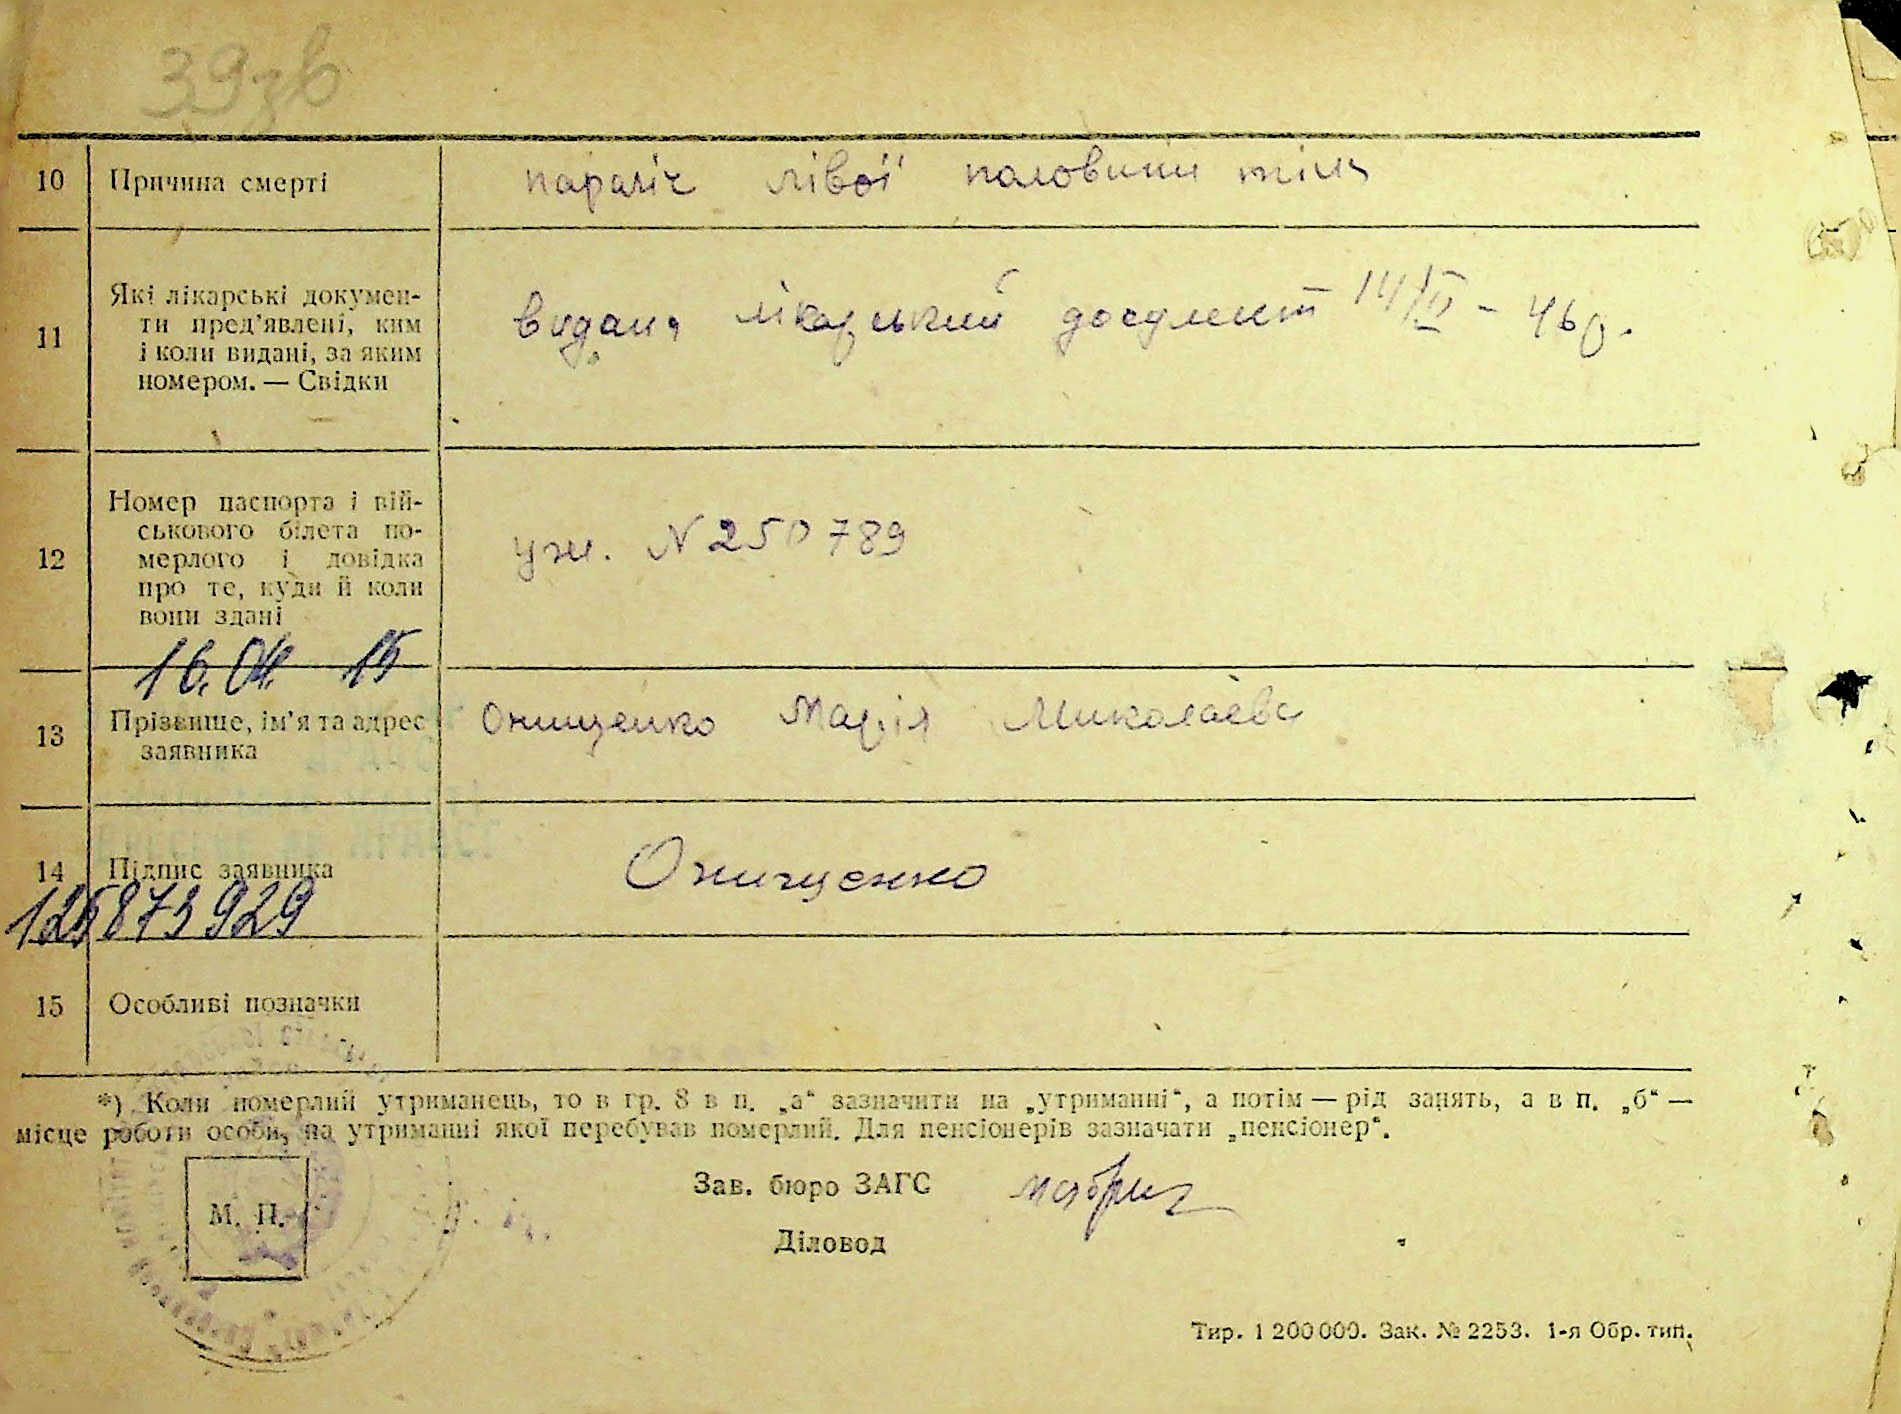 39зв
10 Причина смерті параліч лівої половини тіла
11 Які лікарські докумен-
ти пред’явлені, ким
і коли видані, за яким
номером. — Свідки
видана лікарський документ 14/IV - 46р.
12 Номер паспорта і вій-
ськового білета по-
мерлого і довідка
про те, куди й коли
вони здані
N 250789
16.04. 15
13 Прізвище, ім’я та адрес
заявника
Онищенко Марія Миколаєва
14 Підпис заявника Онищенко
125873929
15 Особливі позначки
*) Коли померлий утриманець, то в гр. 8 в п. „а“ зазначити на „утриманні“, а потім — рід занять, а в п. „б“ —
місце роботи особи, на утриманні якої перебував померлий. Для пенсіонерів зазначати „пенсіонер“.
М. П.
Зав. бюро ЗАГС
Діловод
Тир. 1 200 000. Зак. № 2253. 1-я Обр. тип.